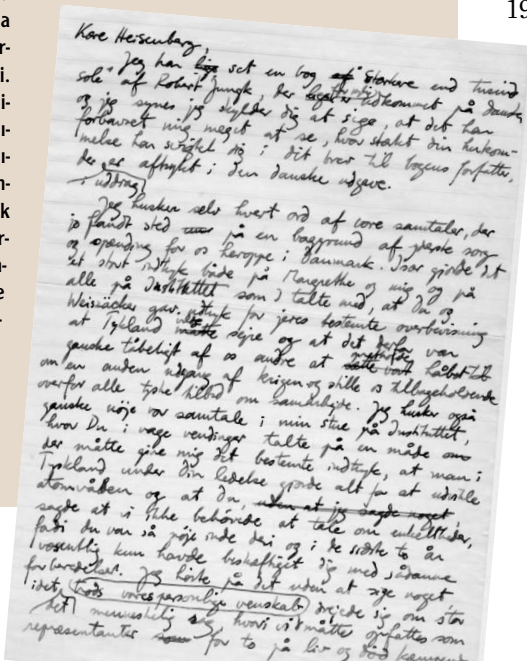 19
a
r-
i.
i-
u-
u-
n-
k
r-
n-
e
Kære Heisenberg,
Jeg har set en bog "Stærkere end tusind
sole" af Robert Jungk, der er udkommet på dansk,
og jeg synes jeg skylder dig at sige, at det har
forbavset mig meget at se, hvor stærkt din hukom-
melse har sviktet dig i dit brev til bogens forfatter,
der er aftrykt i den danske udgave.
i uddrag
Jeg husker selv hvert ord af vore samtaler, der
jo fandt sted på en baggrund af yderste sorg
og spænding for os heroppe i Danmark. Især gjorde det
et stort indtryk både på Margrethe og mig og på
alle på Instituttet som I talte med, at Du og
Weizsäcker gav udtryk for jeres bestemte overbevisning
at Tyskland måtte sejre og at det derfor var
ganske tåbeligt af os andre at håbet til
om en anden udgang af krigen og stille os tilbageholdende
overfor alle tyske tilbud om samarbejde. Jeg husker også
ganske nøje vor samtale i min stue på Instituttet,
hvor Du i vage vendinger talte på en måde
der måtte give mig det bestemte indtryk, at man i
Tyskland under Din ledelse gjorde alt for at udvikle
atomvåben og at Du, uden at jeg sagde noget,
sagde at vi ikke behøvede at tale om enkeltheder,
fordi du var så nøje inde deri og i de sidste to år
væsentlig kun havde beskæftiget dig med sådanne
forberedelser. Jeg hørte på det uden at sige noget
idet, trods vores personlige venskab, drejede sig om stor
det menneskelig hvori vi måtte opfattes som
repræsentanter for to på liv og død